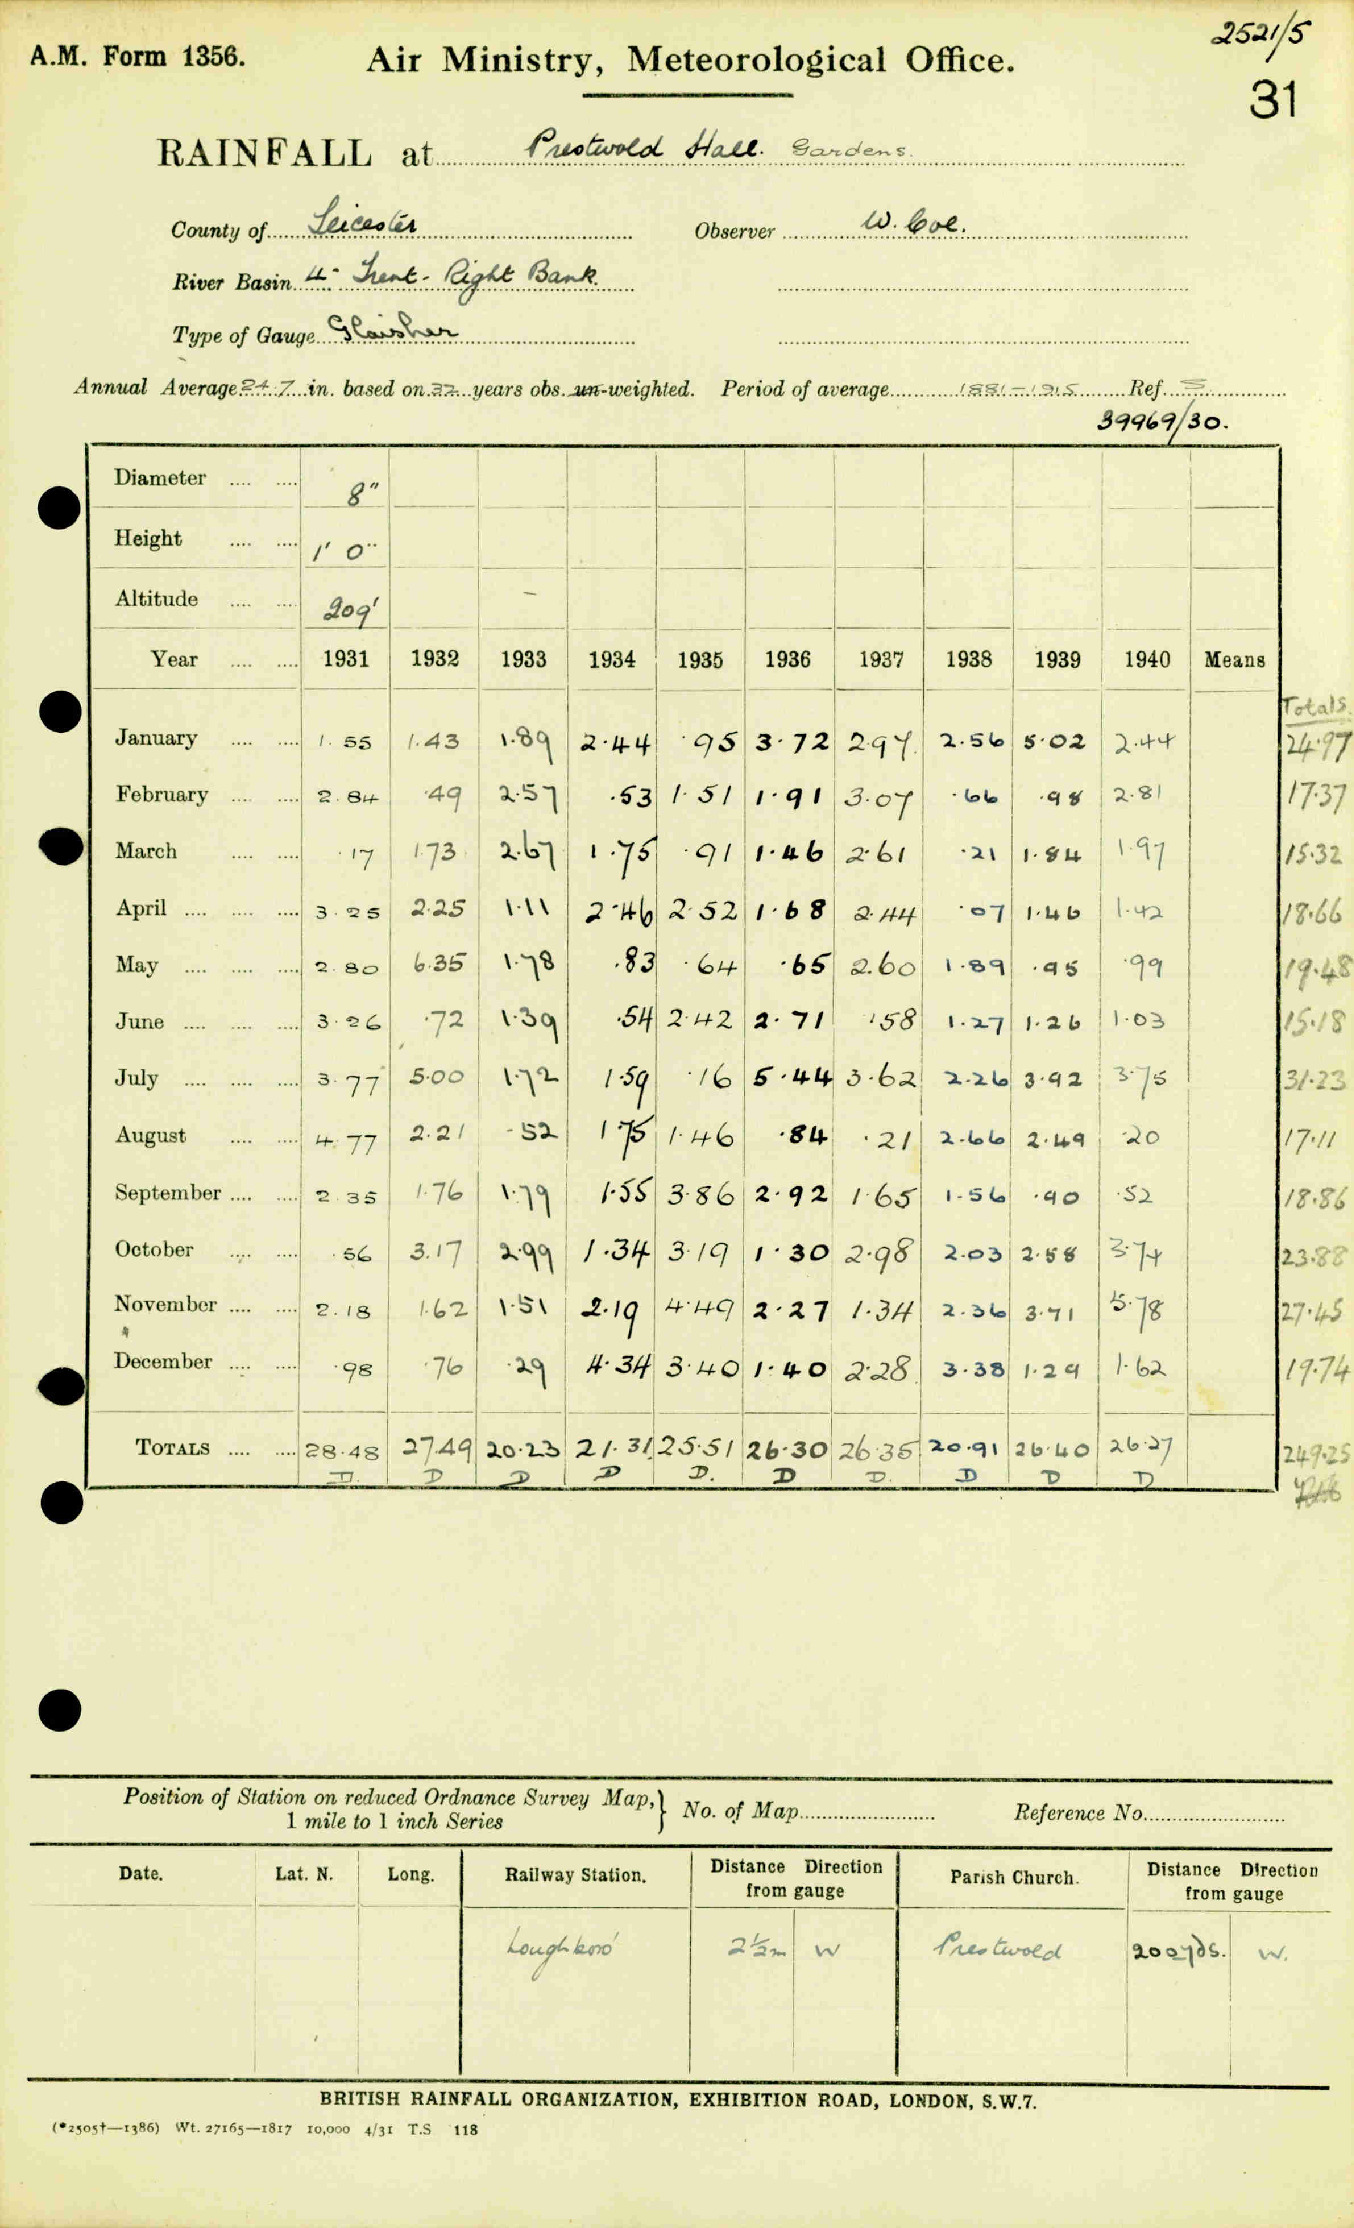 2521/5
A.M. Form 1356. Air Ministry, Meteorological Office.
31
RAINFALL at Prestwold Hall. Gardens.
County of Leicester Observer W. Coe.
River Basin 4. Trent - Right Bank.
Type of Gauge Glaisher
Annual Average 24.7 in. based on 32 years obs. un-weighted. Period of average 1881-1915 Ref. S.
39969/30.
Diameter 8"
Height 1' 0"
Altitude 209' -
Year 1931 1932 1933 1934 1935 1936 1937 1938 1939 1940 Means
Totals.
January 1.55 1.43 1.89 2.44 .95 3.72 2.97 2.56 5.02 2.44 24.97
February 2.84 .49 2.57 .53 1.51 1.91 3.07 .66 .98 2.81 17.37
March .17 1.73 2.67 1.75 .91 1.46 2.61 .21 1.84 1.97 15.32
April 3.25 2.25 1.11 2.46 2.52 1.68 2.44 .07 1.46 1.42 18.66
May 2.80 6.35 1.78 .83 .64 .65 2.60 1.89 .95 .99 19.48
June 3.26 .72 1.39 .54 2.42 2.71 .58 1.27 1.26 1.03 15.18
July 3.77 5.00 1.72 1.59 .16 5.44 3.62 2.26 3.92 3.75 31.23
August 4.77 2.21 .52 1.75 1.46 .84 .21 2.66 2.49 .20 17.11
September 2.35 1.76 1.79 1.55 3.86 2.92 1.65 1.56 .90 .52 18.86
October .56 3.17 2.99 1.34 3.19 1.30 2.98 2.03 2.58 3.74 23.88
November 2.18 1.62 1.51 2.19 4.49 2.27 1.34 2.36 3.71 5.78 27.45
December .98 .76 .29 4.34 3.40 1.40 2.28 3.38 1.29 1.62 19.74
TOTALS 28.48 27.49 20.23 21.31 25.51 26.30 26.35 20.91 26.40 26.27 249.25
D D D D D. D D. D D D
Position of Station on reduced Ordnance Survey Map, } No. of Map Reference No.
1 mile to 1 inch Series
Date. Lat. N. Long. Railway Station. Distance Direction from gauge Parish Church. Distance Direction from gauge
Loughboro' 2½m W Prestwold 200yds. W.
BRITISH RAINFALL ORGANIZATION, EXHIBITION ROAD, LONDON, S.W.7.
(*2505†—1386) Wt. 27165—1817 10,000 4/31 T.S 118